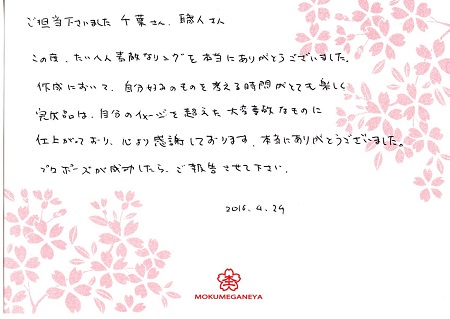 ご担当下さいました 千葉さん、職人さん
この度、たいへん素敵なリングを本当にありがとうございました。
作成において、自分好みのものを考える時間がとても楽しく
完成品は、自分のイメージを超えた大変素敵なものに
仕上がっており、心より感謝しております。本当にありがとうございました。
プロポーズが成功したら、ご報告させて下さい。
2016.4.29
MOKUMEGANEYA